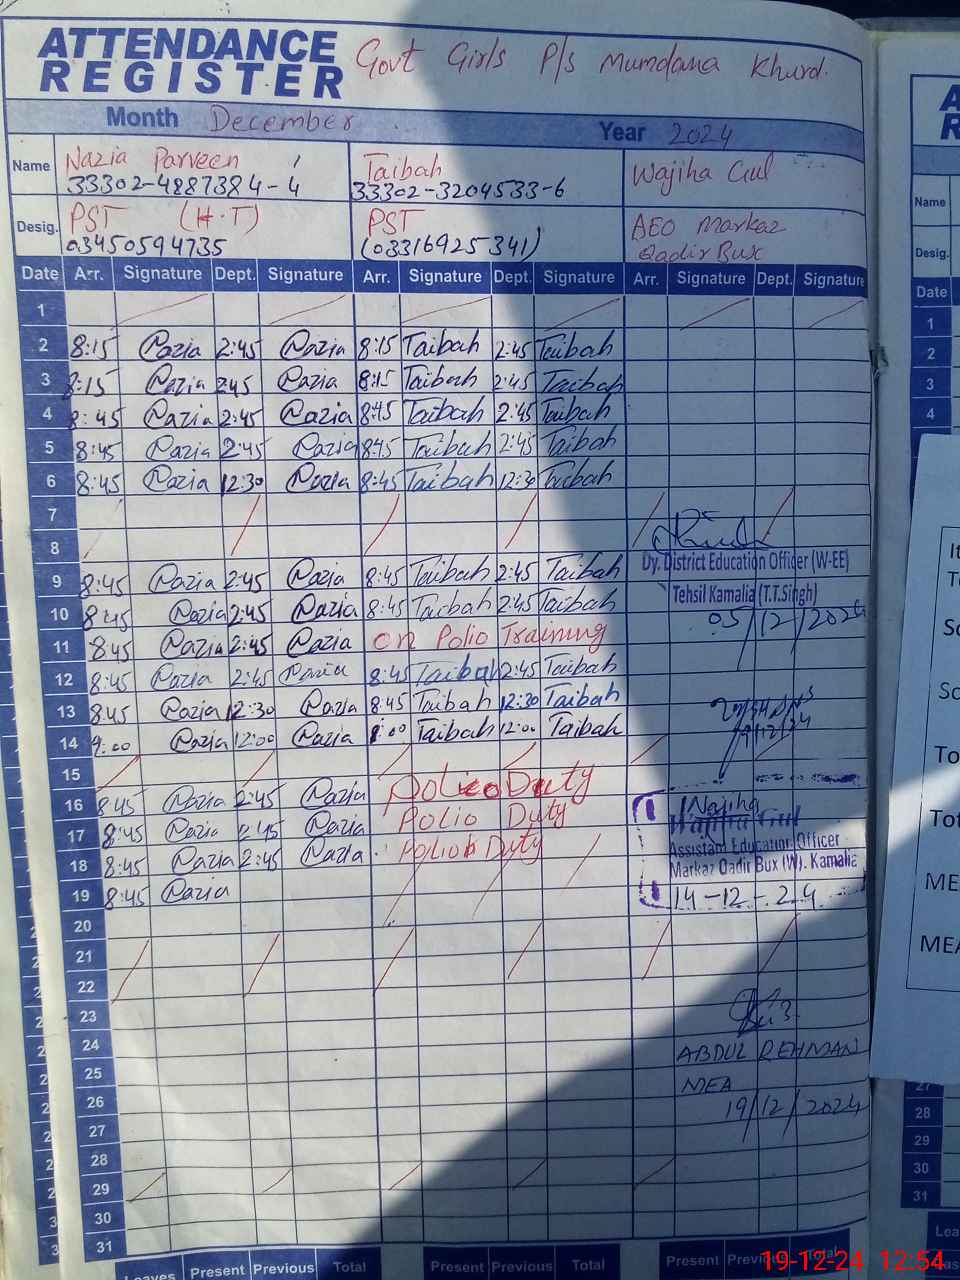 ATTENDANCE REGISTER Govt Girls P/s Mumdana Khurd.
Month December Year 2024
Name Nazia Parveen Taibah Wajiha Gul
33302-4887384-4 33302-3204533-6
Desig. PST (H.T) PST AEO Markaz
03450594735 (03316925341) Qadir Bux
Date Arr. Signature Dept. Signature Arr. Signature Dept. Signature Arr. Signature Dept. Signature
1
2 8:15 Nazia 2:45 Nazia 8:15 Taibah 2:45 Taibah
3 8:15 Nazia 2:45 Nazia 8:15 Taibah 2:45 Taibah
4 8:45 Nazia 2:45 Nazia 8:45 Taibah 2:45 Taibah
5 8:45 Nazia 2:45 Nazia 8:45 Taibah 2:45 Taibah
6 8:45 Nazia 12:30 Nazia 8:45 Taibah 12:30 Taibah
7
8
Dy. District Education Officer (W-EE)
9 8:45 Nazia 2:45 Nazia 8:45 Taibah 2:45 Taibah
Tehsil Kamalia (T.T.Singh)
10 8:45 Nazia 2:45 Nazia 8:45 Taibah 2:45 Taibah
05/12/2024
11 8:45 Nazia 2:45 Nazia on Polio Training
12 8:45 Nazia 2:45 Nazia 8:45 Taibah 2:45 Taibah
13 8:45 Nazia 12:30 Nazia 8:45 Taibah 12:30 Taibah
14 9:00 Nazia 12:00 Nazia 9:00 Taibah 12:00 Taibah
15
16 8:45 Nazia 2:45 Nazia Polio Duty
Wajiha
17 8:45 Nazia 2:45 Nazia Polio Duty
Wajiha Gul
Assistant Education Officer
18 8:45 Nazia 2:45 Nazia Polio Duty
Markaz Qadir Bux (W). Kamalia
19 8:45 Nazia
14-12-24
20
21
22
23
24
ABDUL REHMAN
25
MEA
26
19/12/2024
27
28
29
30
31
Leaves Present Previous Total Present Previous Total Present Previous Total
Name
Desig.
Date
1
2
3
4
27
28
29
30
31
19-12-24 12:54